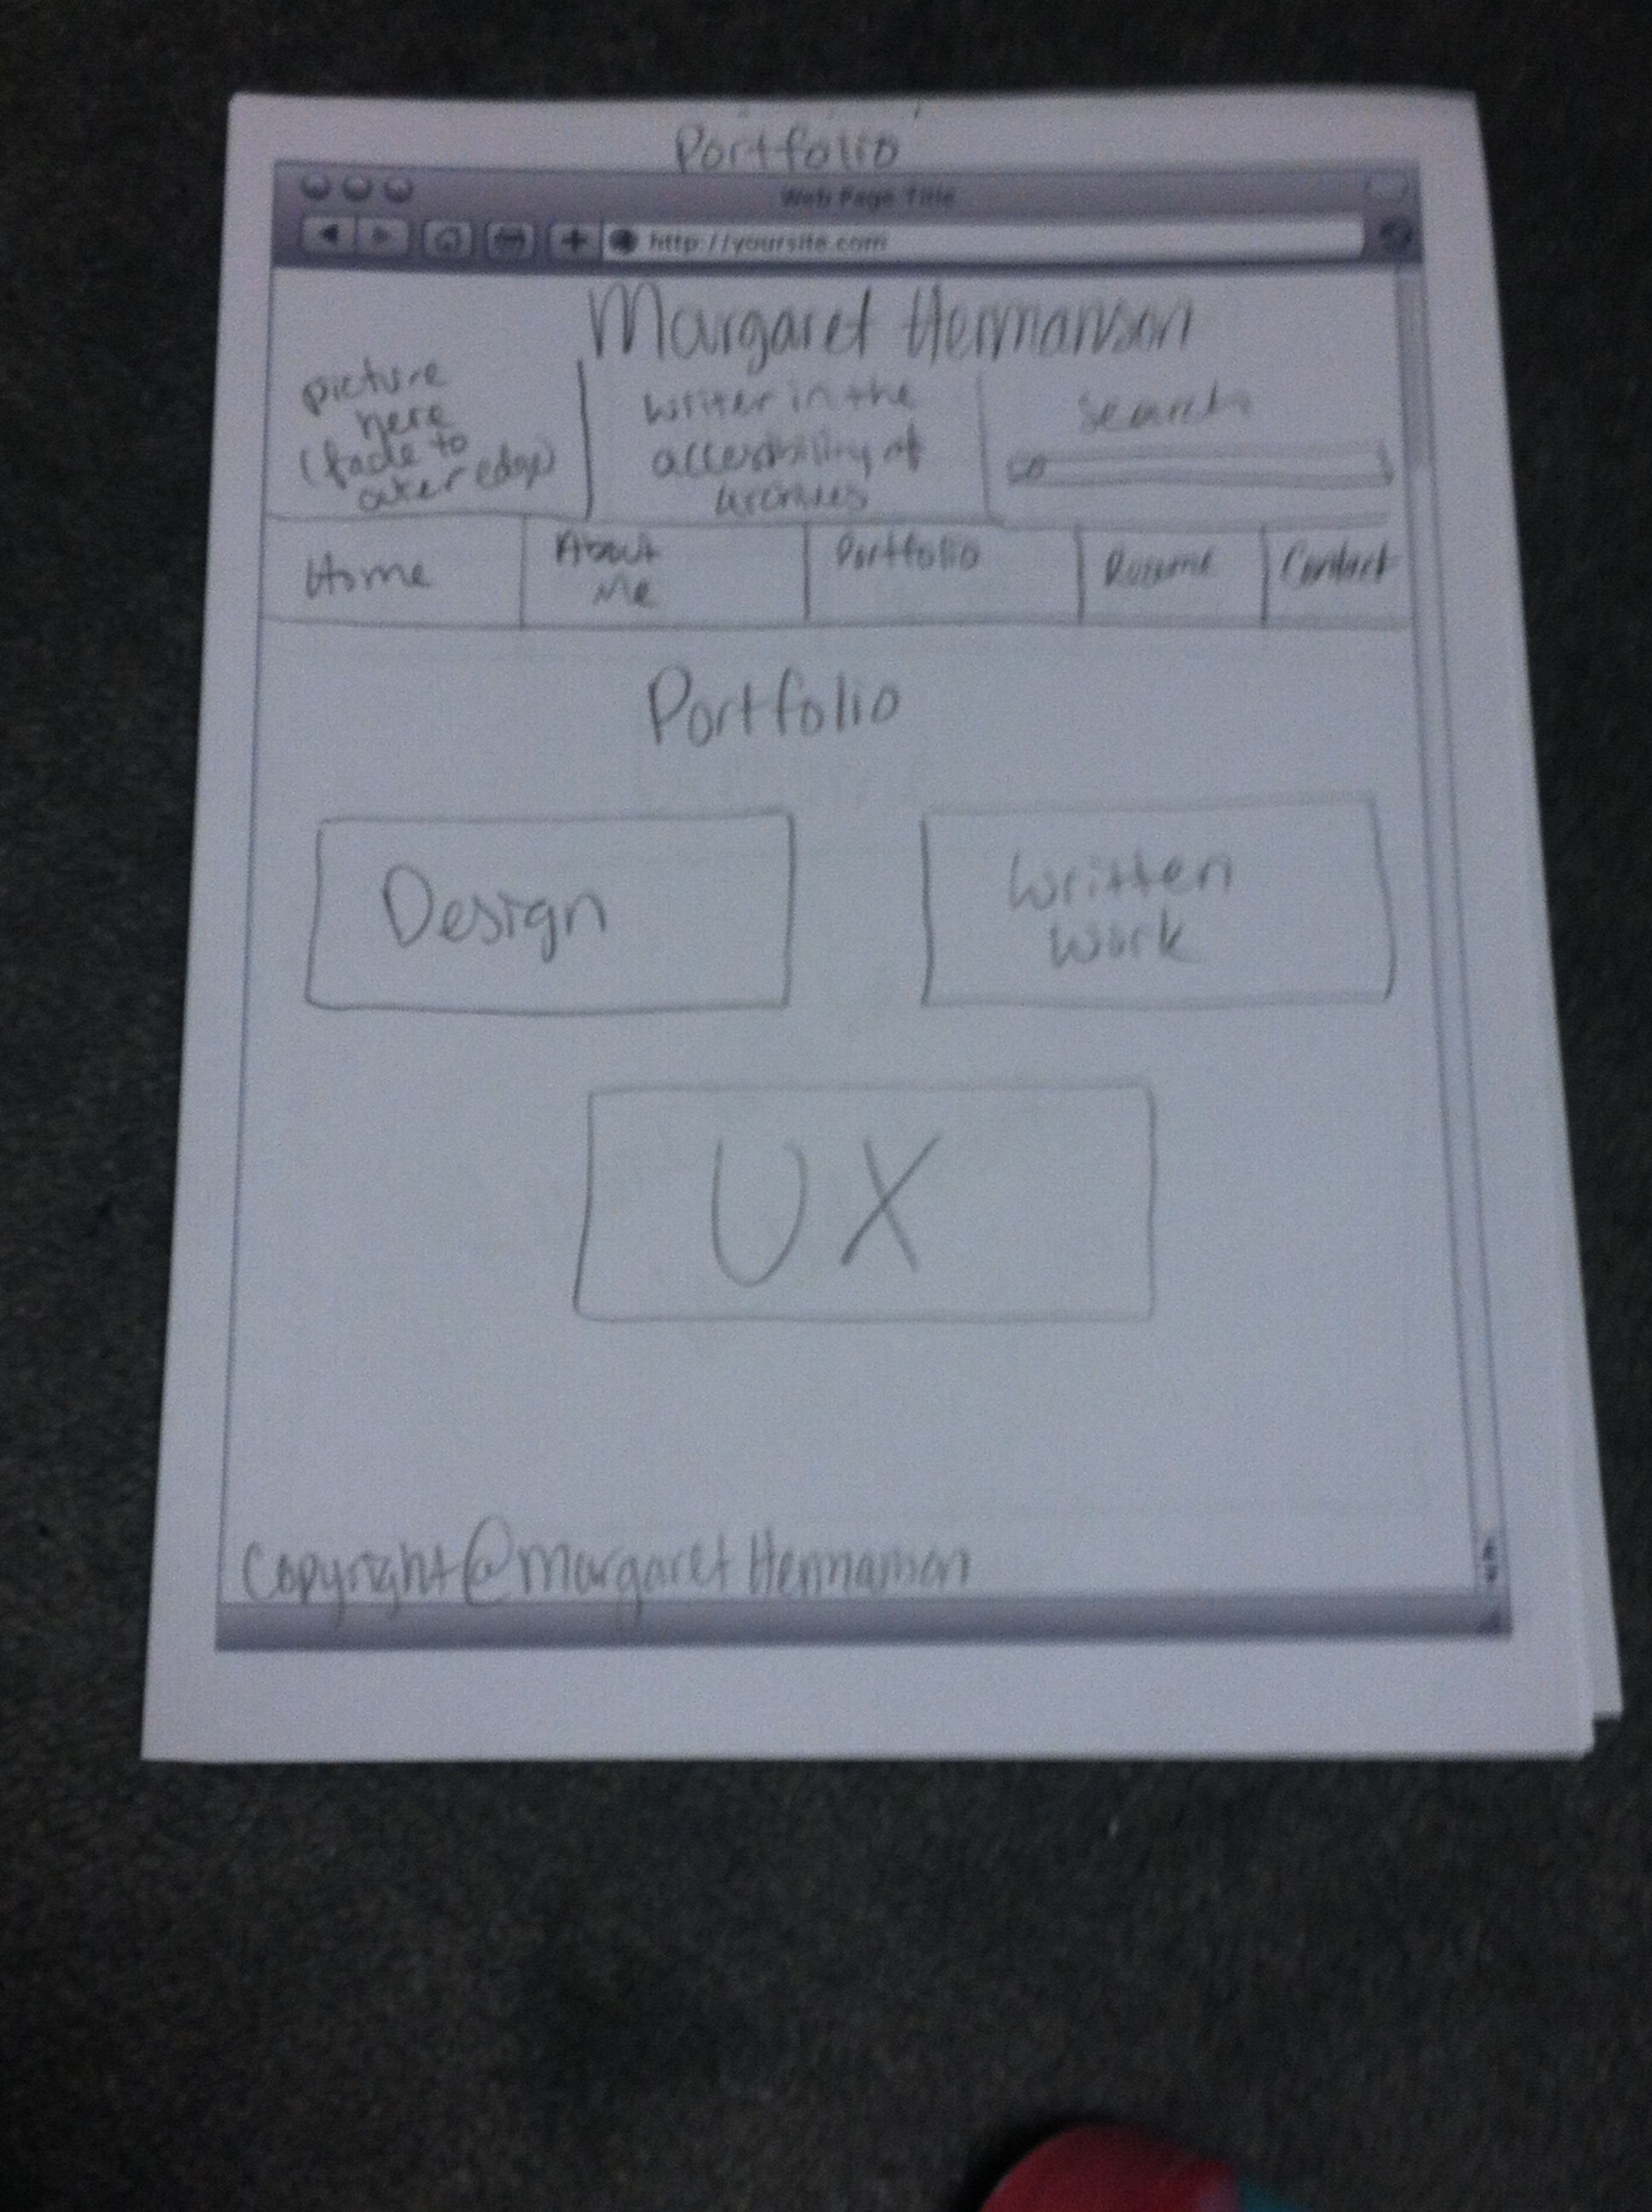 Portfolio
Web Page Title
http://yoursite.com
Margaret Hermanson
picture
here
(fade to
outer edge)
writer in the
accessibility of
archives
Search
Home
About
Me
Portfolio
Resume
Contact
Portfolio
Design
Written
Work
UX
Copyright @ Margaret Hermanson